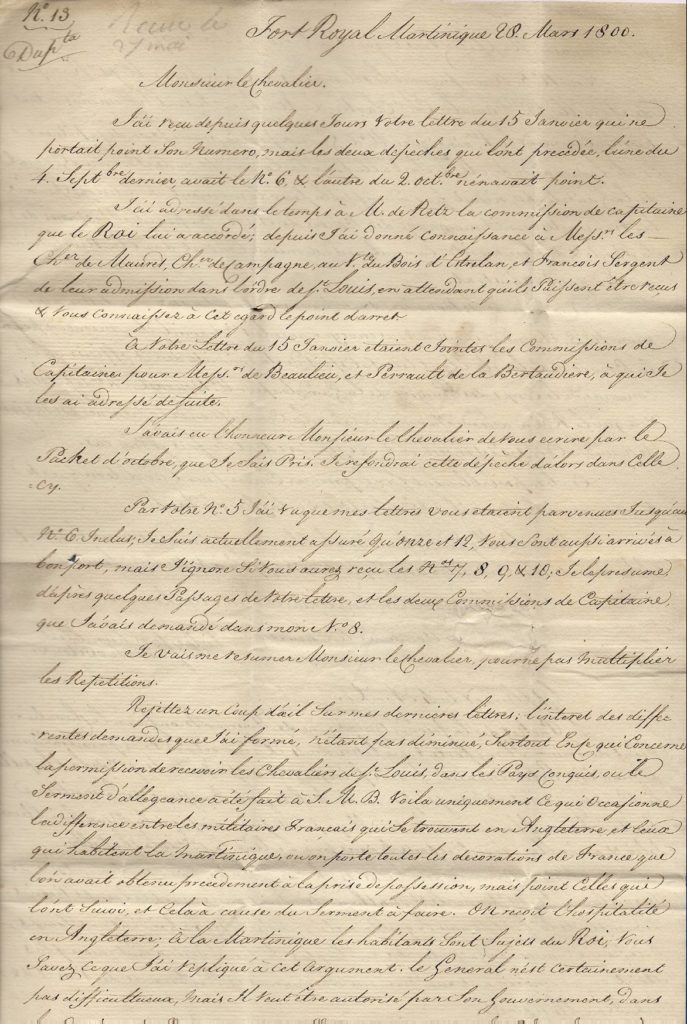 N.º 13
Dup.ta
Recue le
7 mai
Fort Royal Martinique 28. Mars 1800.
Monsieur le Chevalier.
J'ai reçu depuis quelques Jours Votre lettre du 15 Janvier qui ne
portait point Son Numero, mais les deux depêches qui l'ónt precedée, l'úne du
4. Sept.bre dernier, avait le N.º 6, & l'autre du 2. oct.bre n'en avait point.
J'ai adressé dans le temps à M. de Retz la commission de capitaine
que le Roi lui a accordé; depuis J'ai donné connaissance à Mess.rs les
Ch.er de Maurés, Ch.er de Campagne, au V.te du Bois d'Estrelan, et François Sergent
de leur admission dans l'ordre de S.t Louis, en attendant qu'ils Puissent être reçus
& Vous connaissez à Cet egard le point d'arret.
à Votre Lettre du 15 Janvier etaient Jointes les Commissions de
Capitaine pour Mess.rs de Beaulieu, et Perrault de la Bertaudiere, à qui Je
les ai adressé de suite.
J'avais eu l'honneur Monsieur le Chevalier de Vous ecrire par le
Packet d'octobre, que Je Sais Pris. Je refondrai cette dépêche d'alors dans Celle
=cy.
Par Votre N.º 5 J'ai Vu que mes lettres Vous etaient parvenues Jusqu'au
N.º 6 Inclus; Je Suis actuellement assuré Qu'onze et 12, Vous Sont aussi arrivés à
bon port, mais J'ignore Si Vous aurez reçu les N.os 7, 8, 9, & 10; Je le presume,
d'après quelques Passages de Votre lettre, et les deux Commissions de Capitaine,
que J'avais demandé dans mon N.º 8.
Je Vais me resumer Monsieur le Chevalier, pour ne pas Multiplier
les Repetitions.
Rejettez un Coup d'œil Sur mes dernieres lettres; l'interet des diffe
rentes demandes que J'ai formé, n'étant pas diminué, Surtout En ce qui Concerne
la permission de recevoir les Chevaliers de S.t Louis, dans les Pays Conquis, ou le
Serment d'allegeance a été fait à S. M. B. Voila uniquement Ce qui Occasionne
la difference entre les militaires Français qui Se trouvent en Angleterre et Ceux
qui habitent la Martinique, ou on porte toutes les decorations de France que
l'on avait obtenu precedement à la prise de possession, mais point Celles qui
l'ont Suivi, et Cela à cause du Serment à faire. On reçoit l'hospitalité
en Angleterre; à la Martinique les habitants Sont Sujets du Roi, Vous
Savez ce que J'ai répliqué à Cet Argument. le General n'est certainement
pas difficultueux, mais Il Veut être autorisé par Son Gouvernement, dans